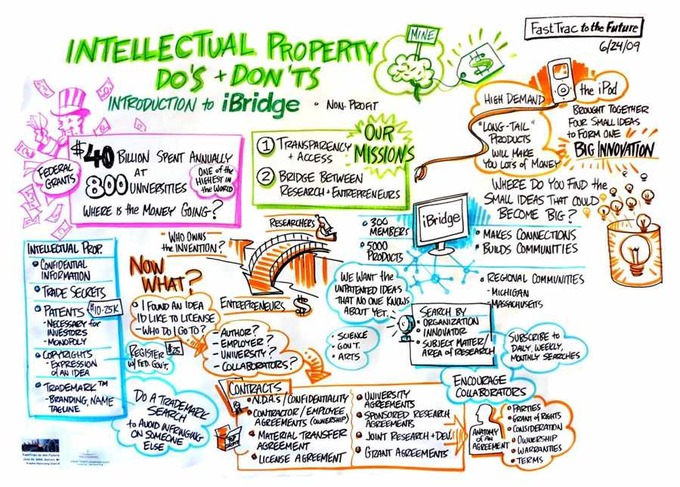 INTELLECTUAL PROPERTY
DO'S + DON'TS
INTRODUCTION to iBridge • NON-PROFIT
MINE
$
FastTrac to the Future
6/24/09
FEDERAL
GRANTS
$40 BILLION SPENT ANNUALLY
AT
800 UNIVERSITIES
ONE of the
HIGHEST IN
the WORLD
WHERE is the MONEY GOING?
OUR
MISSIONS
1 TRANSPARENCY
+ ACCESS
2 BRIDGE BETWEEN
RESEARCH + ENTREPRENEURS
HIGH DEMAND
"LONG-TAIL"
PRODUCTS
WILL MAKE
YOU LOTS of MONEY
the iPod
BROUGHT TOGETHER
FOUR SMALL IDEAS
to FORM ONE
BIG INNOVATION
WHERE DO YOU FIND the
SMALL IDEAS THAT COULD
BECOME BIG?
• MAKES CONNECTIONS
• BUILDS COMMUNITIES
• REGIONAL COMMUNITIES
-MICHIGAN
-MASSACHUSETTS
INTELLECTUAL PROP.
• CONFIDENTIAL
INFORMATION
• TRADE SECRETS
• PATENTS $10-25K
- NECESSARY for
INVESTORS
- MONOPOLY
• COPYRIGHTS
- EXPRESSION
of AN IDEA
• TRADEMARK TM
- BRANDING, NAME
TAGLINE
REGISTER $25
W/ FED. GOVT.
DO A TRADEMARK
SEARCH
to AVOID INFRINGING
ON SOMEONE
ELSE
- WHO OWNS
the INVENTION?
NOW
WHAT?
• I FOUND AN IDEA
I'D LIKE TO LICENSE
- WHO DO I GO TO?
- AUTHOR?
- EMPLOYER?
- UNIVERSITY?
- COLLABORATORS?
RESEARCHERS
ENTREPRENEURS
$
• 300
MEMBERS
• 5000
PRODUCTS
iBridge
WE WANT the
UNPATENTED IDEAS
THAT NO ONE KNOWS
ABOUT YET.
• SCIENCE
• GOV'T.
• ARTS
SEARCH BY
• ORGANIZATION
• INNOVATOR
• SUBJECT MATTER/
AREA of RESEARCH
SUBSCRIBE to
DAILY, WEEKLY,
MONTHLY SEARCHES
ENCOURAGE
COLLABORATORS
CONTRACTS
• N.D.A.s / CONFIDENTIALITY
• CONTRACTOR / EMPLOYEE
AGREEMENTS (OWNERSHIP)
• MATERIAL TRANSFER
AGREEMENT
• LICENSE AGREEMENT
• UNIVERSITY
AGREEMENTS
• SPONSORED RESEARCH
AGREEMENTS
• JOINT RESEARCH + DEV.
• GRANT AGREEMENTS
ANATOMY
of AN
AGREEMENT
• PARTIES
• GRANT of RIGHTS
• CONSIDERATION
• OWNERSHIP
• WARRANTIES
• TERMS
FastTrac to the Future